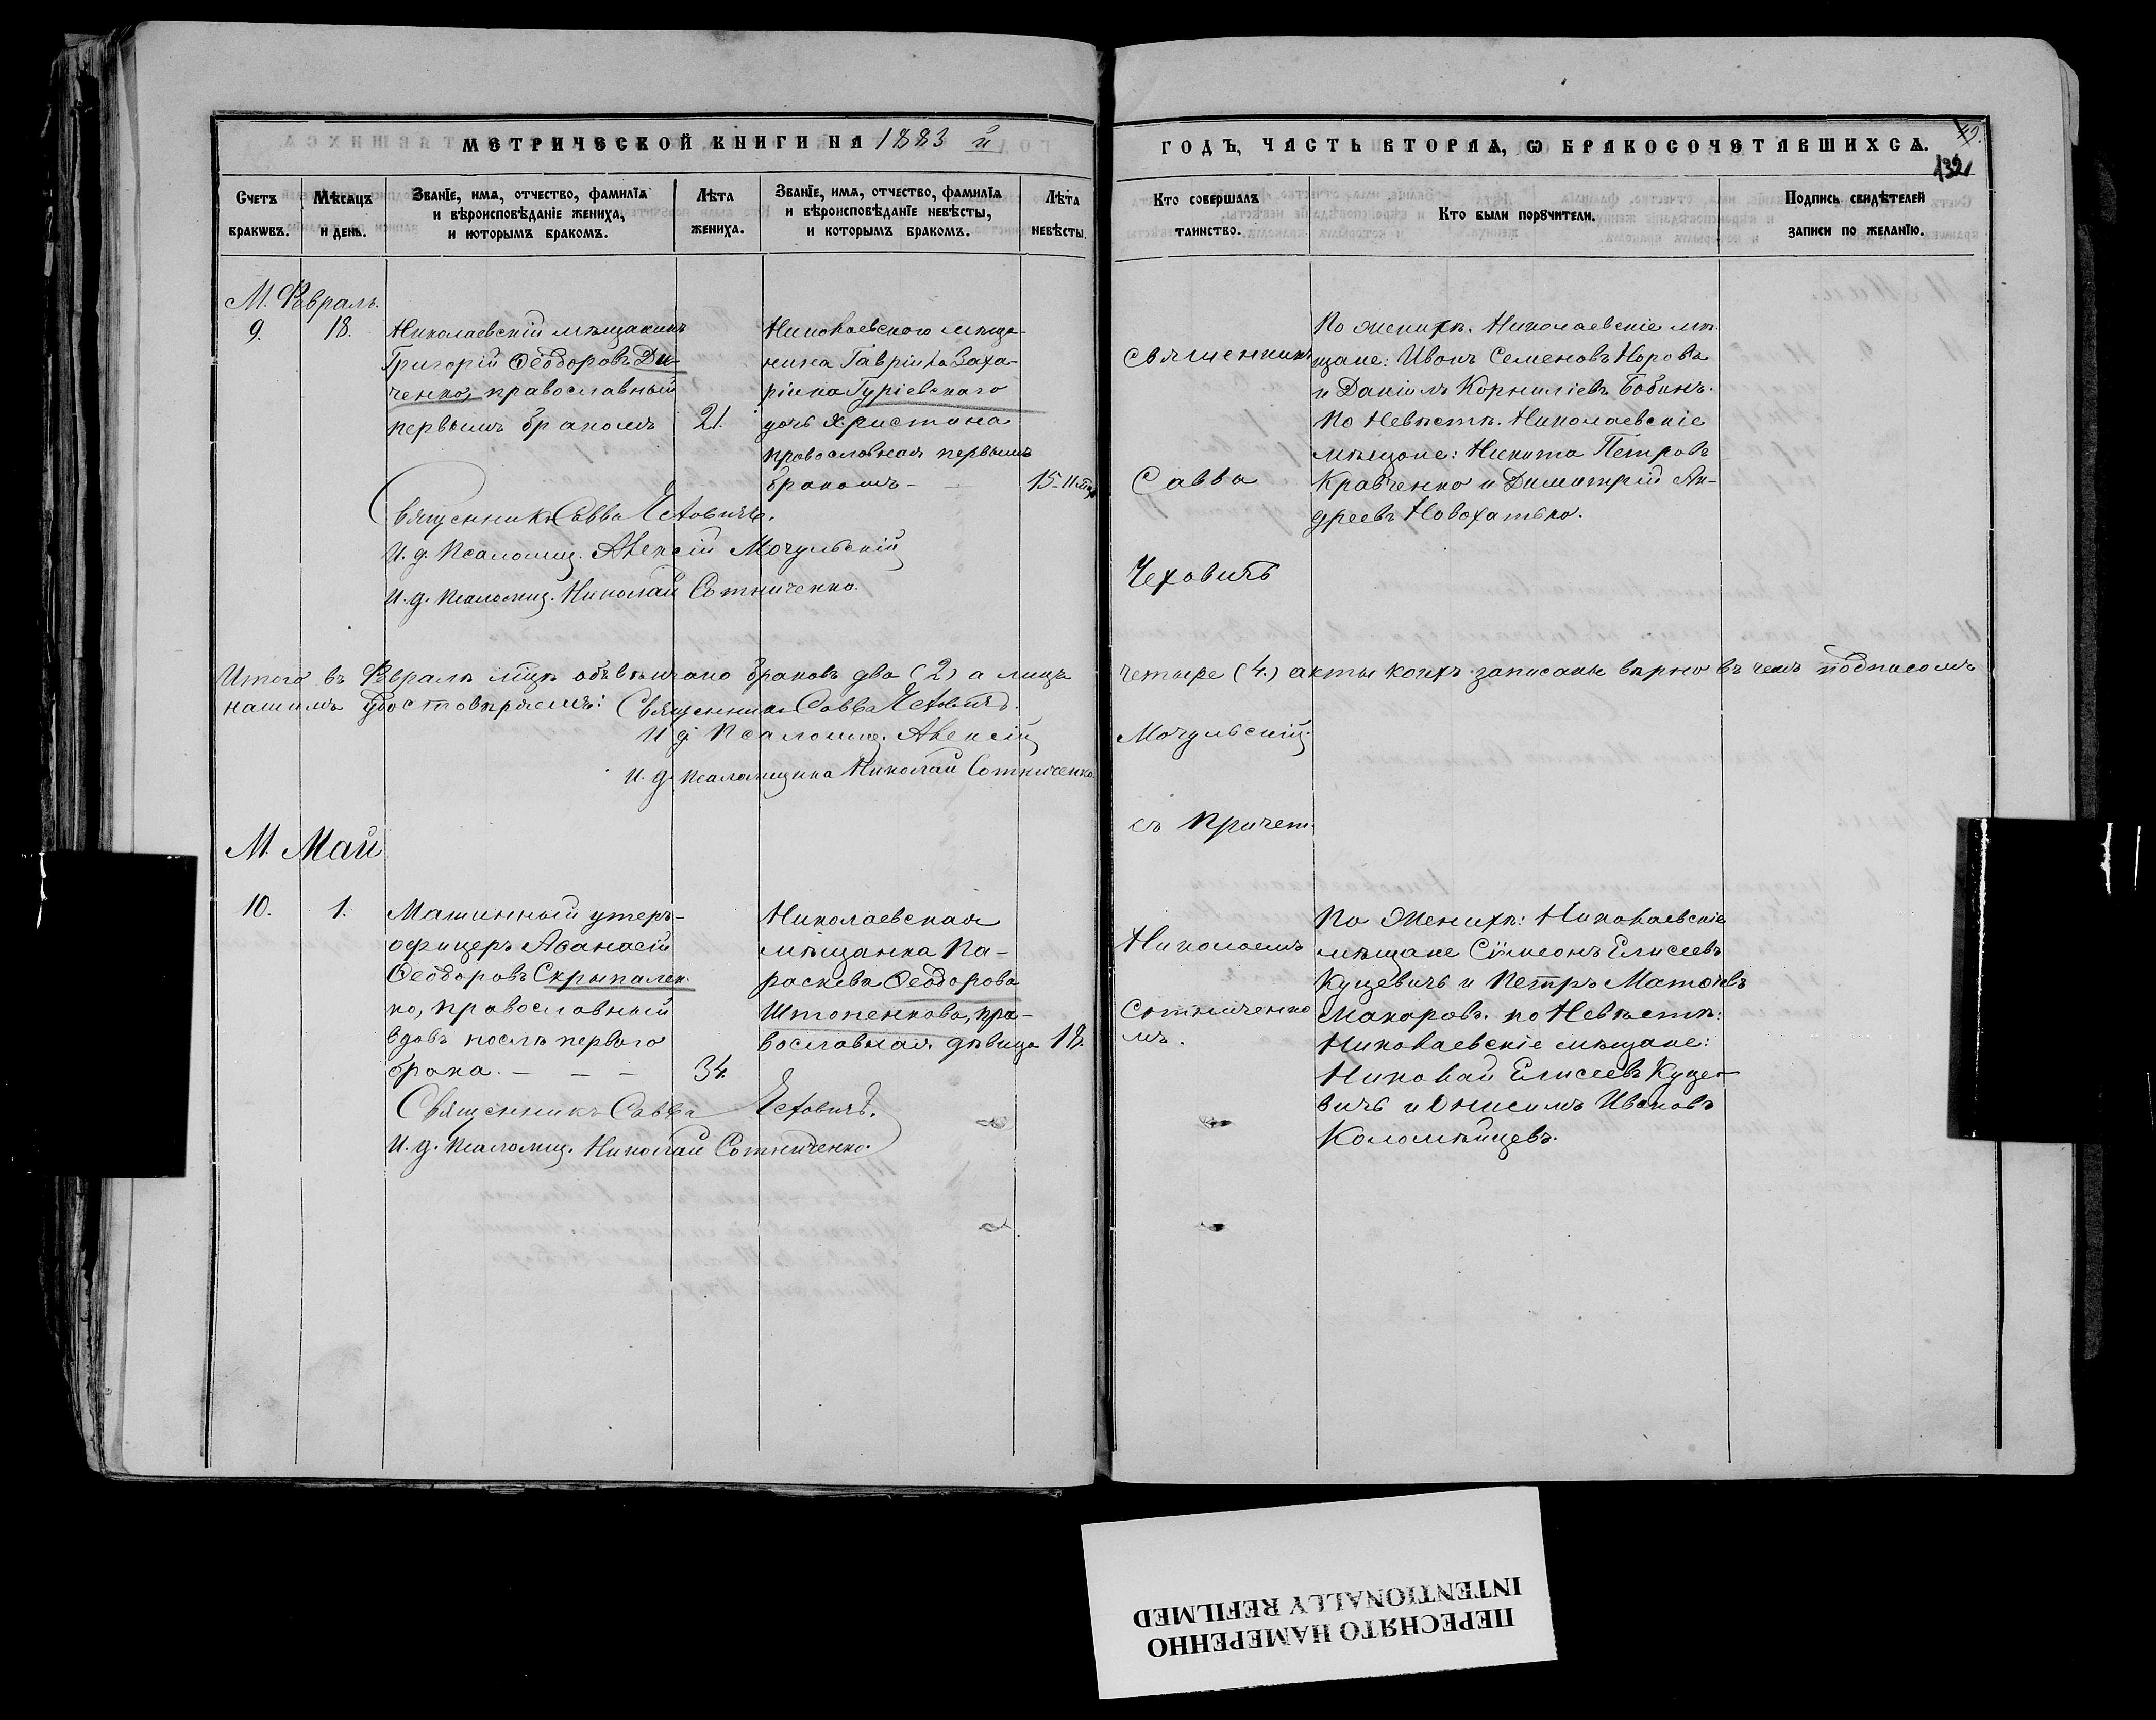 МЕТРИЧЕСКОЙ КНИГИ НА 1883 й
ГОДЪ, ЧАСТЬ ВТОРАѦ, Ѡ БРАКОСОЧЕТАВШИХСѦ.
42.
132
Счетъ браковъ.
Мѣсѧцъ и день.
Званїе, имѧ, отчество, фамилїѧ
и вѣроисповѣданїе жениха,
и которымъ бракомъ.
Лѣта жениха.
Званїе, имѧ, отчество, фамилїѧ
и вѣроисповѣданїе невѣсты,
и которымъ бракомъ.
Лѣта невѣсты.
Кто совершалъ таинство.
Кто были порꙋчители.
Подпись свидѣтелей
записи по желанїю.
М. Февраль.
9.
18.
Николаевскій мѣщанинъ
Григорій Ѳеодоровъ Ди-
ченко, православный
первымъ бракомъ
21.
Николаевского мѣща-
нина Гавріила Заха-
ріина Гуріевскаго
дочь Христина
православная первымъ
бракомъ
15-11 мц.
Священникъ
Савва
Чеховичъ
съ причет.
По женихѣ. Николаевскіе мѣ-
щане: Иванъ Семеновъ Норовъ
и Даніилъ Корниліевъ Бобинъ.
По Невѣстѣ. Николаевскіе
мѣщане: Никита Петровъ
Кравченко и Димитрій Ан-
дреевъ Новохатько.
Священникъ Савва Чеховичъ.
И. д. Псаломщ. Алексій Мочульскій
И. д. псаломщ. Николай Сотниченко.
Итого въ Февралѣ мцѣ обвѣнчано браковъ два (2) а лицъ четыре (4.) акты коихъ записаны вѣрно въ чемъ подписомъ
нашимъ удостовѣряемъ: Священникъ Савва Чеховичъ.
И д. Псаломщ. Алексій Мочульскій.
И. д. псаломщика Николай Сотниченко.
М. Май
10.
1.
Машинный унтеръ-
офицеръ Аѳанасій
Ѳеодоровъ Скрыпален-
ко, православный
вдовъ послѣ перваго
брака.
34.
Николаевская
мѣщанка Па-
раскева Ѳеодорова
Штопенкова, пра-
вославная дѣвица
18.
Николаемъ
Сотниченко
мъ.
По Женихѣ: Николаевскіе
мѣщане Сѵмеонъ Елисеевъ
Куцевичъ и Петръ Матѳеевъ
Макаровъ. по Невѣстѣ:
Николаевскіе мѣщане:
Николай Елисеевъ Куце-
вичъ и Онисимъ Ивановъ
Коломѣйцевъ.
Священникъ Савва Чеховичъ.
И. д. псаломщ. Николай Сотниченко.
ПЕРЕСНЯТО НАМЕРЕННО
INTENTIONALLY REFILMED